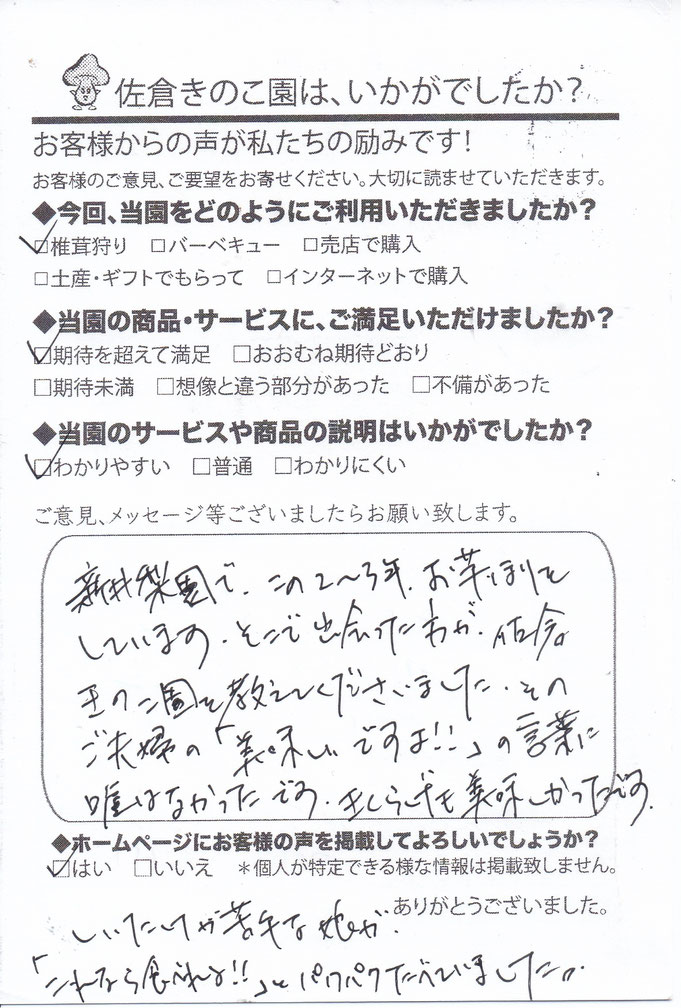 佐倉きのこ園は、いかがでしたか?
お客様からの声が私たちの励みです!
お客様のご意見、ご要望をお寄せください。大切に読ませていただきます。
◆今回、当園をどのようにご利用いただきましたか?
☑椎茸狩り □バーベキュー □売店で購入
□土産・ギフトでもらって □インターネットで購入
◆当園の商品・サービスに、ご満足いただけましたか?
☑期待を超えて満足 □おおむね期待どおり
□期待未満 □想像と違う部分があった □不備があった
◆当園のサービスや商品の説明はいかがでしたか?
☑わかりやすい □普通 □わかりにくい
ご意見、メッセージ等ございましたらお願い致します。
新井梨園で、この2〜3年、お芋ほりを
しています。そこで出会った方が、佐倉
きのこ園を教えてくださいました。その
ご夫婦の「美味しいですよ!!」の言葉に
嘘はなかったです。美味しかったです。
◆ホームページにお客様の声を掲載してよろしいでしょうか?
☑はい □いいえ *個人が特定できる様な情報は掲載致しません。
ありがとうございました。
しいたけが苦手な娘が、
「これなら食べれる!!」とパクパクたべていました